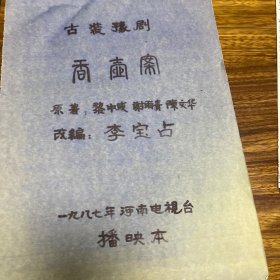 古装豫剧
香壶案
原著：黎中城 谢雨青 陈文华
改编：李宝占
一九八七年河南电视台
播映本